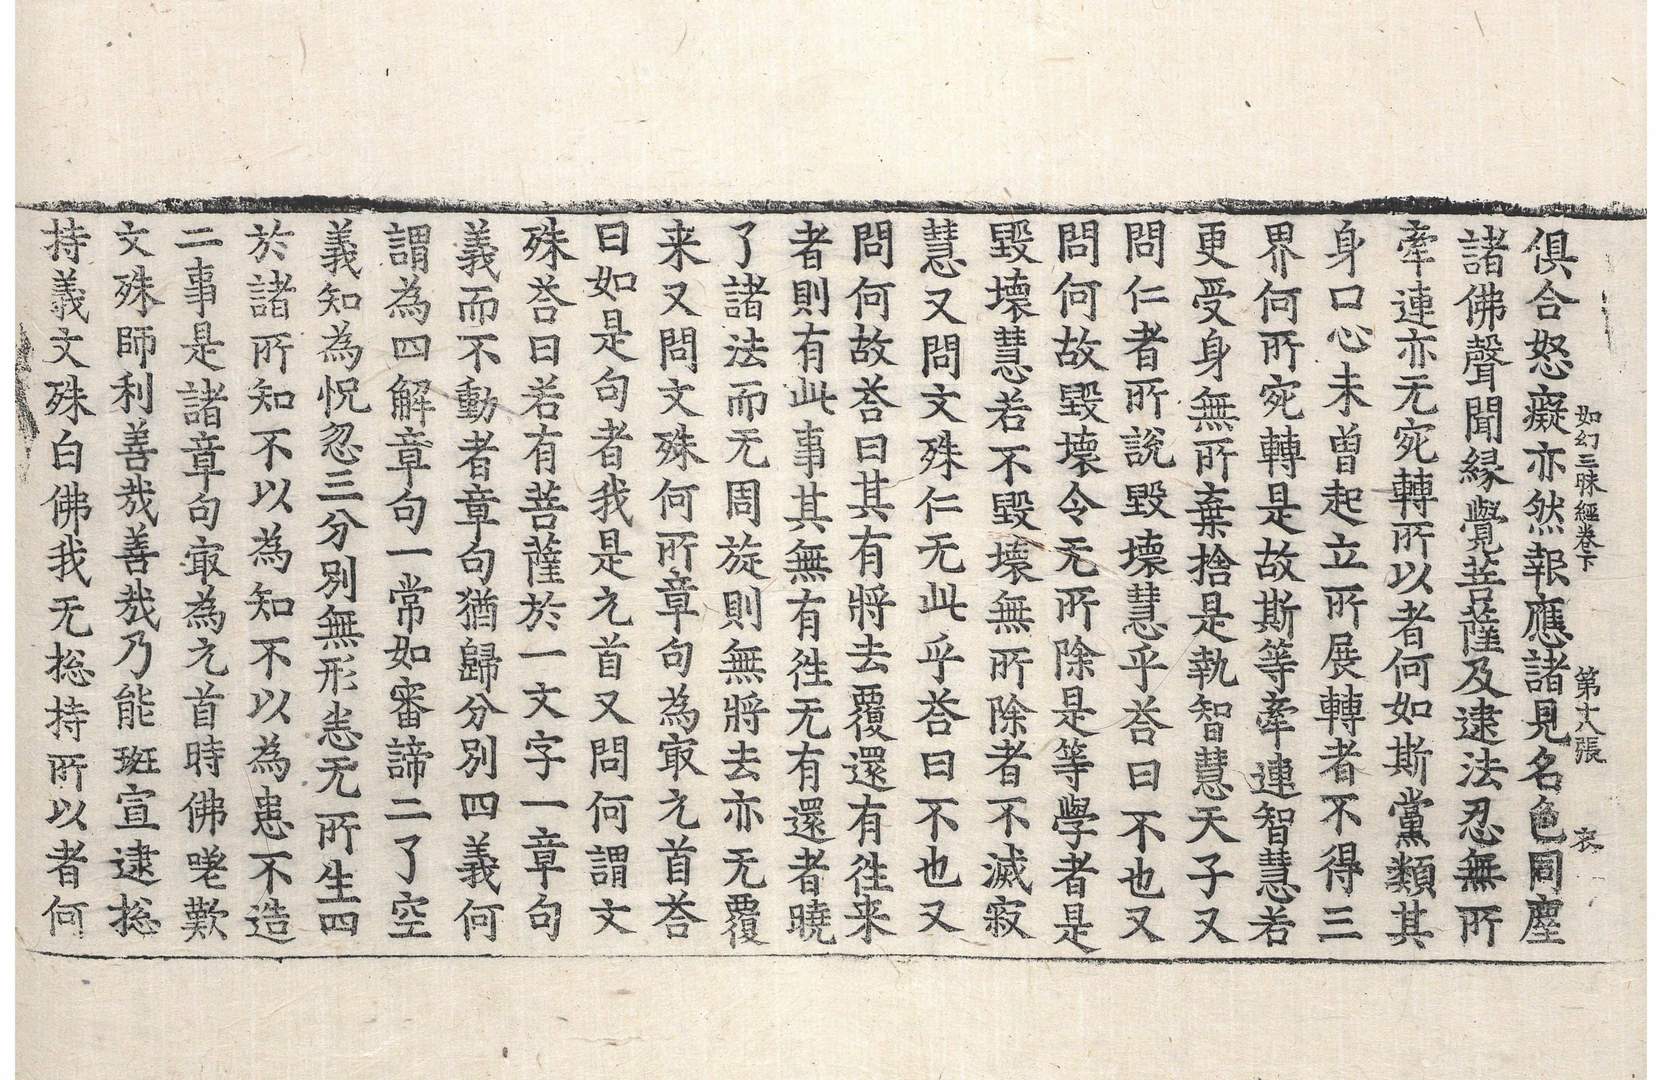 如幻三昧經卷下 第十八張 衣
俱合怒癡亦然報應諸見名色同塵
諸佛聲聞縁覺菩薩及逮法忍無所
牽連亦无宛轉所以者何如斯黨類其
身口心未曽起立所展轉者不得三
界何所宛轉是故斯等牽連智慧若
更受身無所棄捨是執智慧天子又
問仁者所說毀壞慧乎荅曰不也又
問何故毀壞令无所除是等學者是
毀壞慧若不毀壞無所除者不滅寂
慧又問文殊仁无此乎荅曰不也又
問何故荅曰其有將去覆還有徃来
者則有此事其無有徃无有還者曉
了諸法而无周旋則無將去亦无覆
来又問文殊何所章句為㝡元首荅
曰如是句者我是元首又問何謂文
殊荅曰若有菩薩於一文字一章句
義而不動者章句猶歸分別四義何
謂為四解章句一常如審諦二了空
義知為怳忽三分別無形悉无所生四
於諸所知不以為知不以為恚不造
二事是諸章句㝡為元首時佛嗟歎
文殊師利善哉善哉乃能班宣逮捴
持義文殊白佛我无捴持所以者何